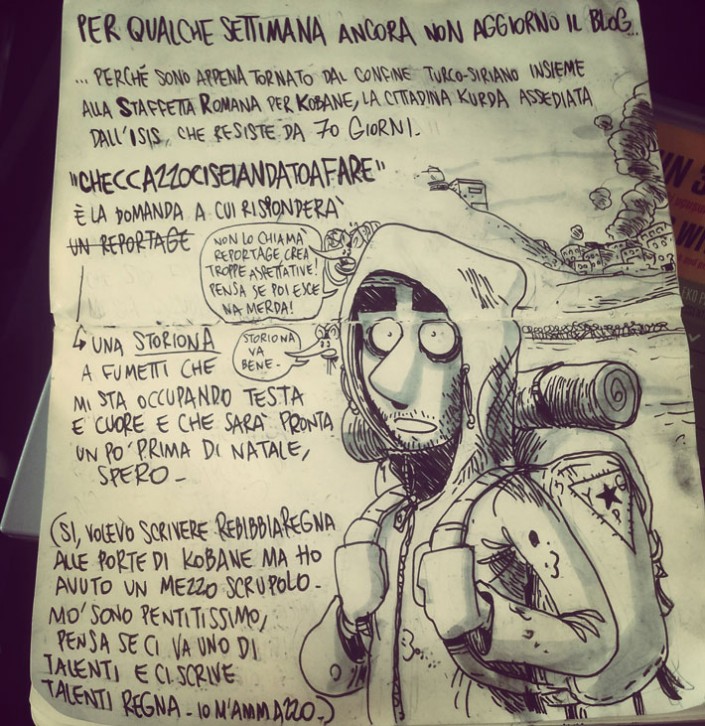 PER QUALCHE SETTIMANA ANCORA NON AGGIORNO IL BLOG..
... PERCHÉ SONO APPENA TORNATO DAL CONFINE TURCO-SIRIANO INSIEME
ALLA STAFFETTA ROMANA PER KOBANE, LA CITTADINA KURDA ASSEDIATA
DALL'ISIS, CHE RESISTE DA 70 GIORNI.
"CHECCAZZOCISEIANDATOAFARE"
È LA DOMANDA A CUI RISPONDERÀ
UN REPORTAGE
NON LO CHIAMÀ
REPORTAGE, CREA
TROPPE ASPETTATIVE!
PENSA SE POI ESCE
NA MERDA!
UNA STORIONA
STORIONA
VA
BENE.
A FUMETTI CHE
MI STA OCCUPANDO TESTA
E CUORE E CHE SARÀ PRONTA
UN PO' PRIMA DI NATALE,
SPERO.
(SI, VOLEVO SCRIVERE REBIBBIA REGNA
ALLE PORTE DI KOBANE MA HO
AVUTO UN MEZZO SCRUPOLO.
MO' SONO PENTITISSIMO,
PENSA SE CI VA UNO DI
TALENTI E CI SCRIVE
TALENTI REGNA. IO M'AMMAZZO.)